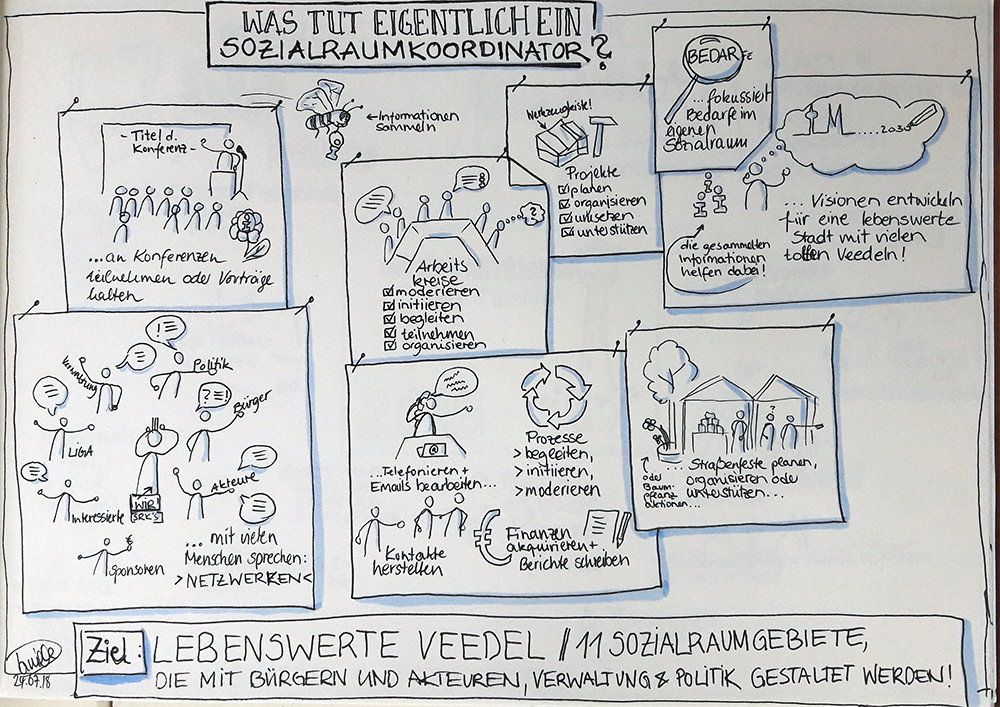 WAS TUT EIGENTLICH EIN
SOZIALRAUMKOORDINATOR?
- Titel d.
Konferenz -
...an Konferenzen
teilnehmen oder Vorträge
halten
← Informationen
sammeln
i
Arbeits
kreise
☑ moderieren
☑ initiieren
☑ begleiten
☑ teilnehmen
☑ organisieren
?
Projekte
☑ planen
☑ organisieren
☑ umsetzen
☑ unterstützen
BEDARFE
...fokussiert
Bedarfe im
eigenen
Sozialraum
.....2030
i i i
die gesammelten
Informationen
helfen dabei!
... Visionen entwickeln
für eine lebenswerte
Stadt mit vielen
tollen Veedeln!
Verwaltung
Politik
Bürger
LIGA
Akteure
Interessierte
WIR
SRK'S
Sponsoren
€
... mit vielen
Menschen sprechen:
>NETZWERKEN<
...Telefonieren +
Emails bearbeiten...
Prozesse
> begleiten,
> initiieren,
> moderieren
Kontakte
herstellen
€
Finanzen
akquirieren +
Berichte schreiben
... Straßenfeste planen,
organisieren oder
unterstützen...
oder
Baum-
pflanz
aktionen...
Ziel:
LEBENSWERTE VEEDEL // 11 SOZIALRAUMGEBIETE,
DIE MIT BÜRGERN UND AKTEUREN, VERWALTUNG & POLITIK GESTALTET WERDEN!
24.07.18